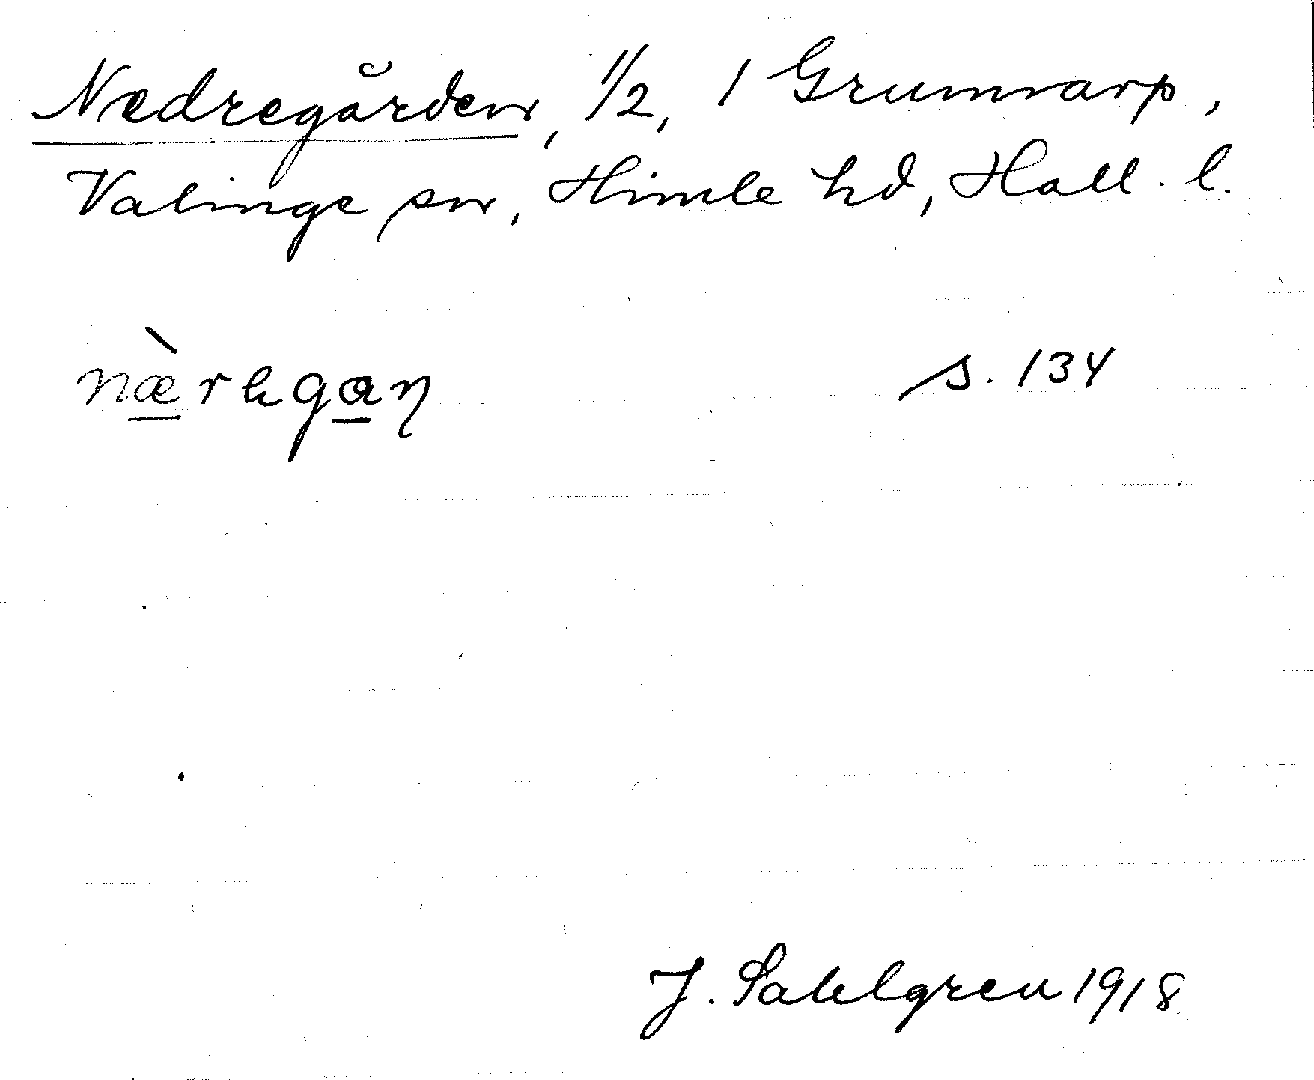 Nedregården, 1/2, 1 Grumnarp,
Valinge sn, Himle hd, Hall. l.
næ̀regan s. 134
J. Sahlgren 1918